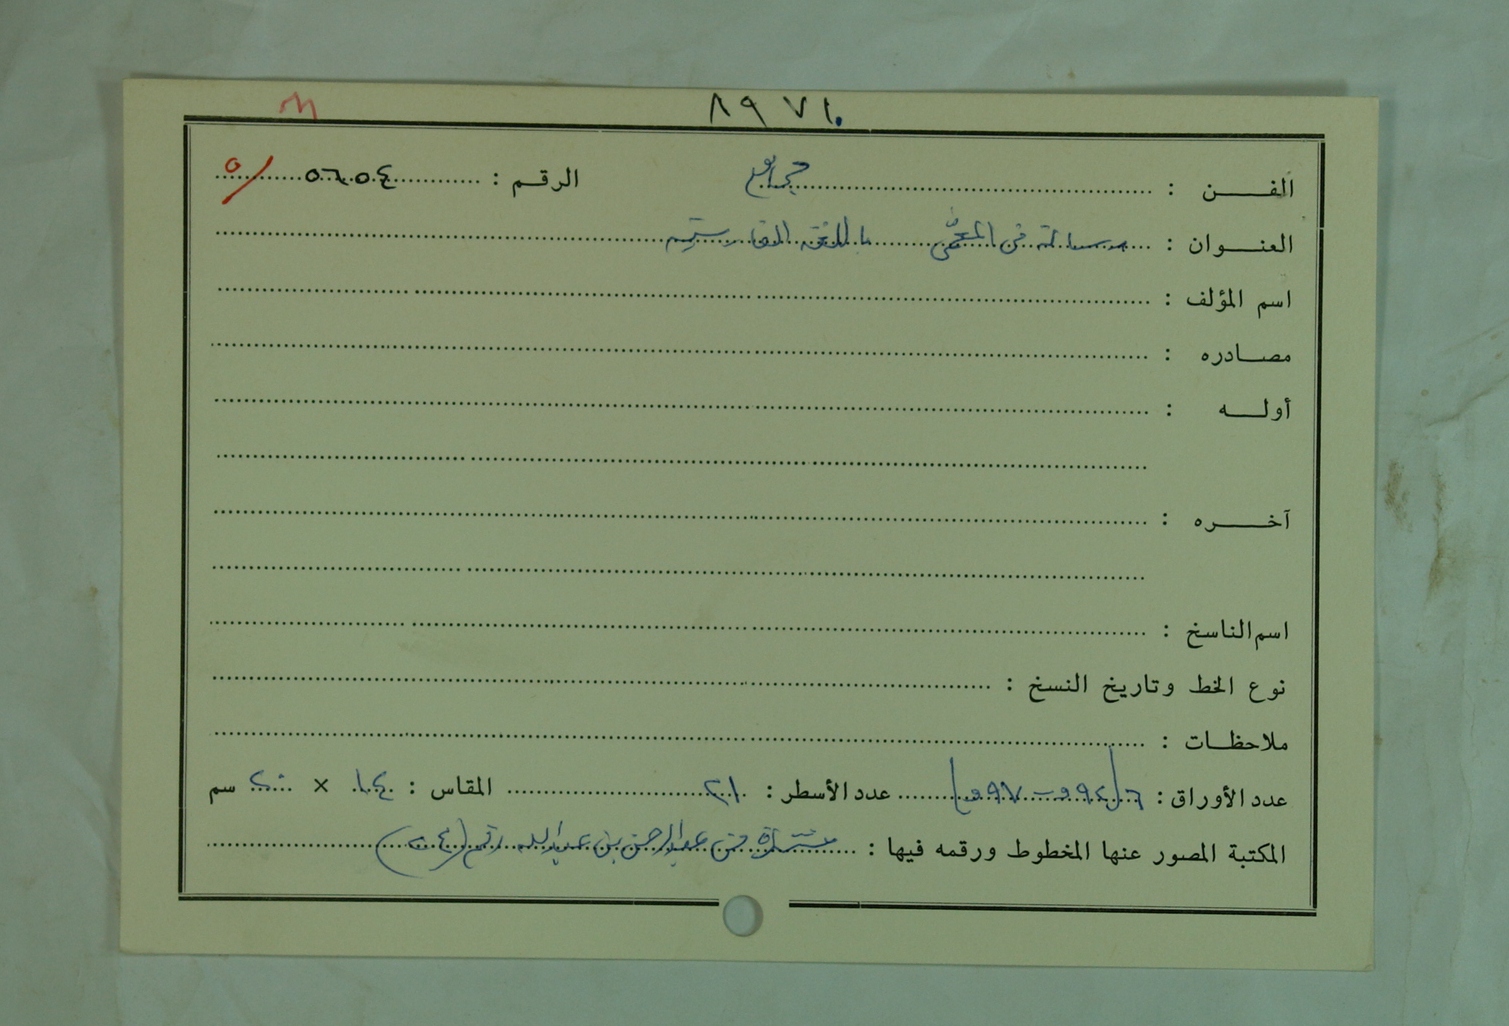 ٨٩٧١
الفـــن : مجاميع الرقـم : ٥٦٠٥٤ / ٥
العنـــوان : رسالة في المعمّى باللغة الفارسية
اسم المؤلف :
مصـــادره :
أولـــه :
آخـــره :
اسم الناسخ :
نوع الخط وتاريخ النسخ :
ملاحظـات :
عدد الأوراق : ٦ عدد الأسطر : ٢١ المقاس : ١٤ × ٢٠ سم
المكتبة المصور عنها المخطوط ورقمه فيها : مشتراة من عبدالرحمن بن عبدالله رقم